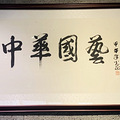 中華國藝